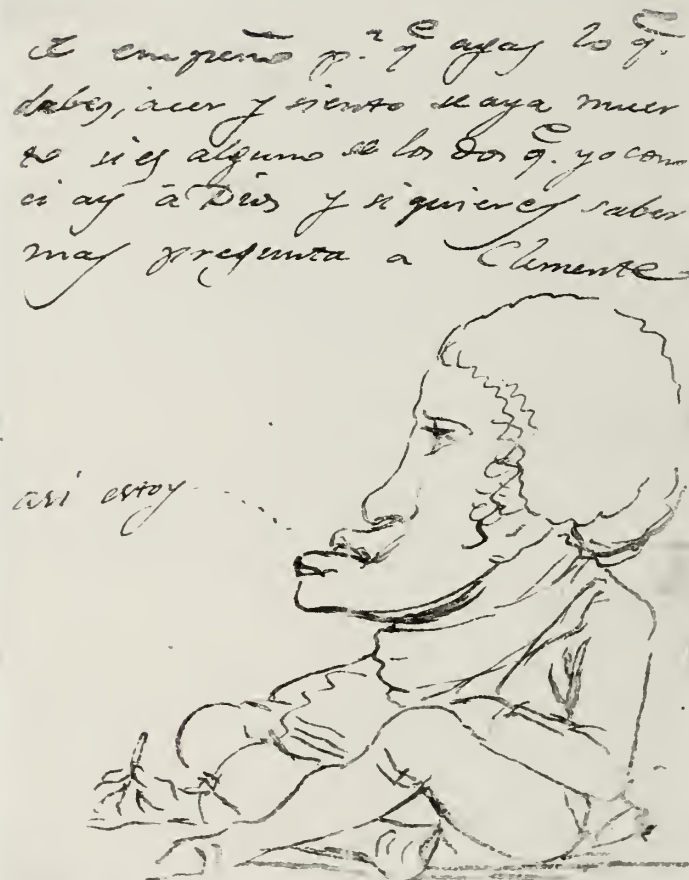 empeño p.ª q.e agas lo q.e
debes, acer y siento se aya muer
to si es alguno de los dos q.e yo cono
ci ay â Dios y si quieres saber
mas pregunta a Clemente
asi estoy